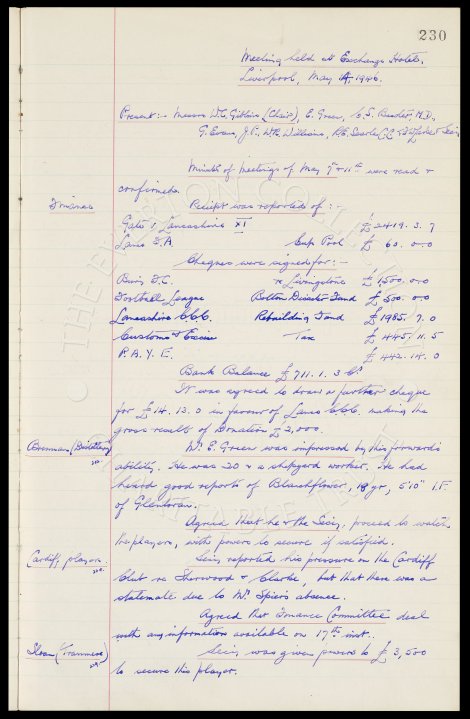 230
Meeting held at Exchange Hotel,
Liverpool, May 14, 1946.
Present:- Messrs W.C. Gibbins (Chair), E. Green, C.S. Baxter, M.D.,
G. Evans, J.P., W.R. Williams, R.E. Searle C.C. & Secy.
Minutes of meetings of May 9th & 11th were read &
confirmed.
Finance
Receipt was reported of:-
Gate v Lancashire XI £2419. 3. 7
Lancs F.A. Cup Pool £ 60. 0. 0
Cheques were signed for:-
Bury F.C. re Livingstone £1,500. 0. 0
Football League Bolton Disaster Fund £ 500. 0. 0
Lancashire C.C.C. Rebuilding Fund £ 1985. 7. 0
Customs & Excise Tax £ 445. 11. 5
P.A.Y.E. £ 442. 14. 0
Bank Balance £711. 1. 3
It was agreed to draw a further cheque
for £14. 13. 0 in favour of Lancs C.C.C. making the
gross result of Donation £2,000.
Brennan (Distillery)
Mr. E. Green was impressed by this forward's
ability. He was 20 & a shipyard worker. He had
had good reports of Blanchflower, 18 yr, 5'10" I.F.
of Glentoran.
Agreed that he & the Secy. proceed to watch
the players, with powers to secure if satisfied.
Cardiff players
Secy. reported his pressure on the Cardiff
Club re Sherwood & Clarke, but that there was a
stalemate due to Mr. Spiers absence.
Agreed that Finance Committee deal
with any information available on 17th inst.
Sloan (Tranmere)
Secy. was given powers to £3,500
to secure this player.
THE EVERTON COLLECTION